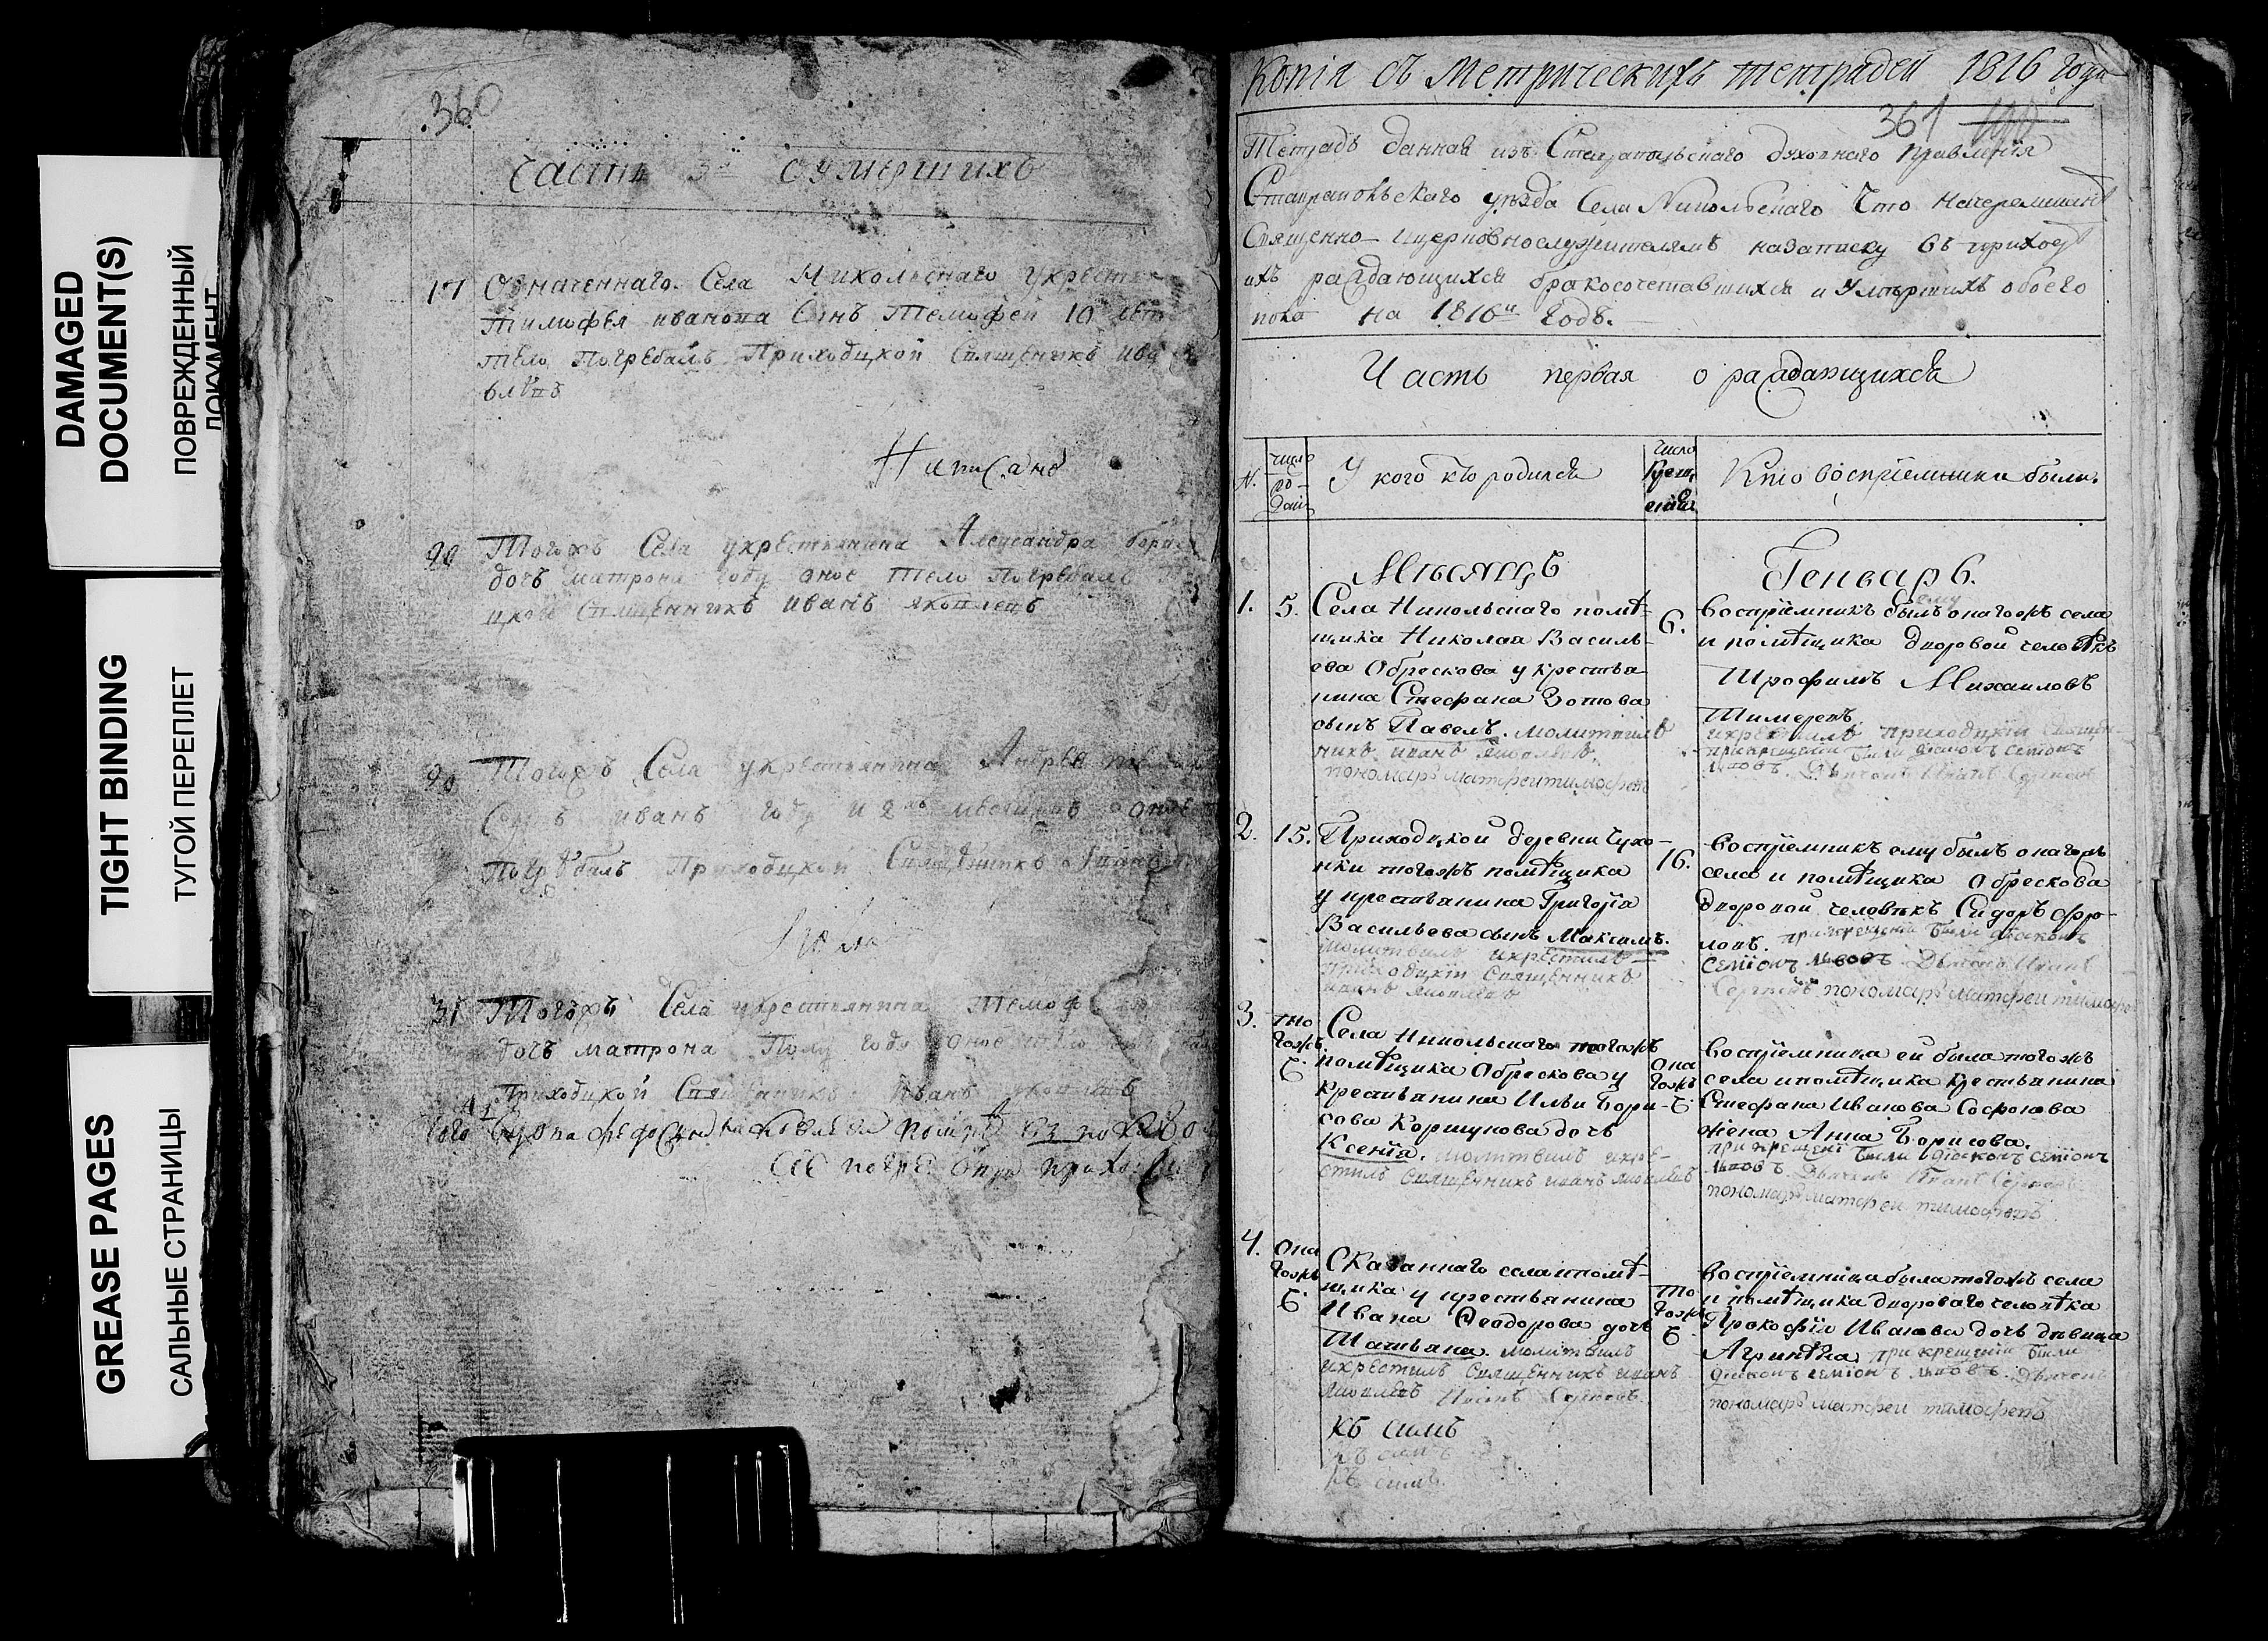 DAMAGED
DOCUMENT(S)
ПОВРЕЖДЕННЫЙ
ДОКУМЕНТ
TIGHT BINDING
ТУГОЙ ПЕРЕПЛЕТ
GREASE PAGES
САЛЬНЫЕ СТРАНИЦЫ
360
Часть 3я О умершихъ
17 Означеннаго Села Никольскаго укрестья
тимофея иванова Сынъ Тимофей 10 летъ
тело Погребалъ Приходцкой Священникъ ива
Написано
20 Тогожъ Села укрестьянина Александра борис
дочь матрона году оное Тело Погребалъ
цкой Священникъ иванъ яковлевъ
20 Тогожъ Села укрестьянина Андрея
Сынъ иванъ году и 2хъ месяцовъ оное
Погребалъ Приходцкой Священникъ Иванъ
31 Тогожъ Села укрестьянина Тимоф
дочь матрона Полу году оное тело
Приходцкой Священникъ Иванъ яковлевъ
Копія съ Метрическихъ тетрадей 1816 года
361
Тетрадь данная изъ Ставропольскаго духовнаго правленія
Ставропольскаго уѣзда Села Никольскаго Что на черемшанѣ
Священно-ицерковнослужителямъ назаписку въ приходѣ
ихъ раждающихся бракосочетавшихся и умершихъ обоего
пола на 1816й годъ.
Часть первая о раждающихся
N. число рожденія У кого кто родился число Крещенія Кто воспріемники были.
Мѣсяцъ Генварь.
1. 5. Села Никольскаго помѣ-
щика Николая Василь-
ева Обрескова у крестья
нина Стефана Зотова
сынъ Павелъ. молитвилъ
никъ иванъ яковлевъ.
пономарь матфеи тимофеевъ
6. воспріемникъ ему былъ онагожъ села
и помѣщика дворовой человѣкъ
Трофимъ Михаиловъ
икрестилъ приходцкіи священ-
прикрещеніи были діаконъ семіонъ
львовъ. Дьячекъ Иванъ Сергеевъ
2. 15. Приходцкой деревни Чухо-
нки тогожъ помѣщика
у крестьянина Григорья
Васильева сынъ Максимъ.
молитвилъ икрестилъ
приходцкіи священникъ
иванъ яковлевъ
16. воспріемникъ ему былъ онагожъ
села и помѣщика Обрескова
дворовой человѣкъ Сидоръ Фро-
ловъ. прикрещеніи были діаконъ
семіонъ львовъ Дьячекъ Иванъ
Сергеевъ пономарь матфеи тимофеевъ
3. тогожъ Села Никольскаго тогожъ
помѣщика Обрескова у
крестьянина Ильи Бори-
сова Коршунова дочь
Ксенія. молитвилъ икре-
стилъ священникъ иванъ яковлевъ
онагожъ воспріемница ей была тогожъ
села ипомѣщика крестьянина
Стефана Иванова Софонова
жена Анна Борисова.
при крещеніи были діаконъ семіонъ
львовъ Дьячекъ Иванъ Сергеевъ
пономарь матфеи тимофеевъ
4. онагожъ Сказаннаго села ипомѣ-
щика у крестьянина
Ивана Ѳеодорова дочь
Татьяна. молитвилъ
икрестилъ священникъ иванъ
яковлевъ Иванъ Сергеевъ
тогожъ воспріемница была тогожъ села
и помѣщика двороваго человѣка
Прокофья Иванова дочь дѣвица
Агрипѣна при крещеніи были
діаконъ семіонъ львовъ. Дьячекъ
пономарь матфеи тимофеевъ
къ симъ
къ симъ
къ симъ